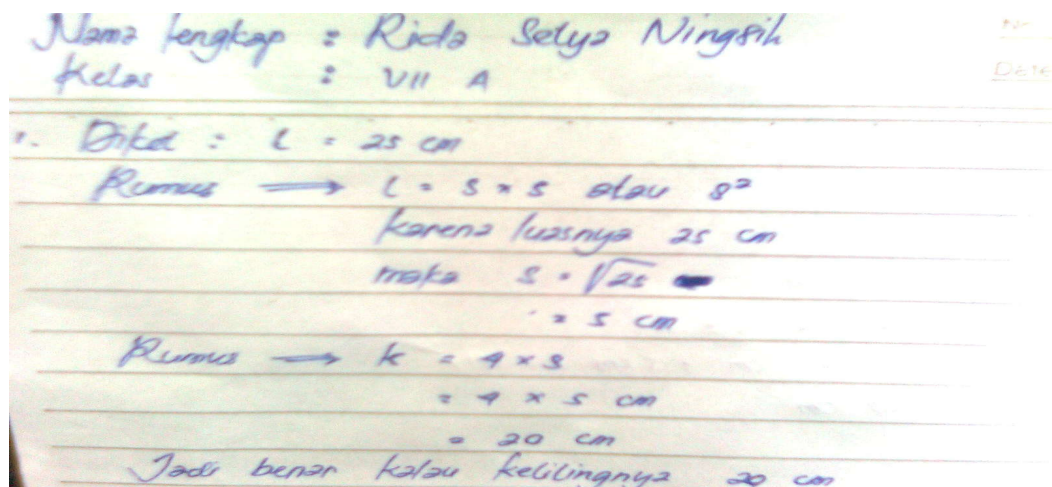 Nama lengkap : Rida Setya Ningsih
Kelas : VII A
No
Date
1. Diket : L = 25 cm
Rumus ⟹ L = s × s atau s²
karena luasnya 25 cm
maka s = √25
= 5 cm
Rumus ⟹ k = 4 × s
= 4 × 5 cm
= 20 cm
Jadi benar kalau kelilingnya 20 cm